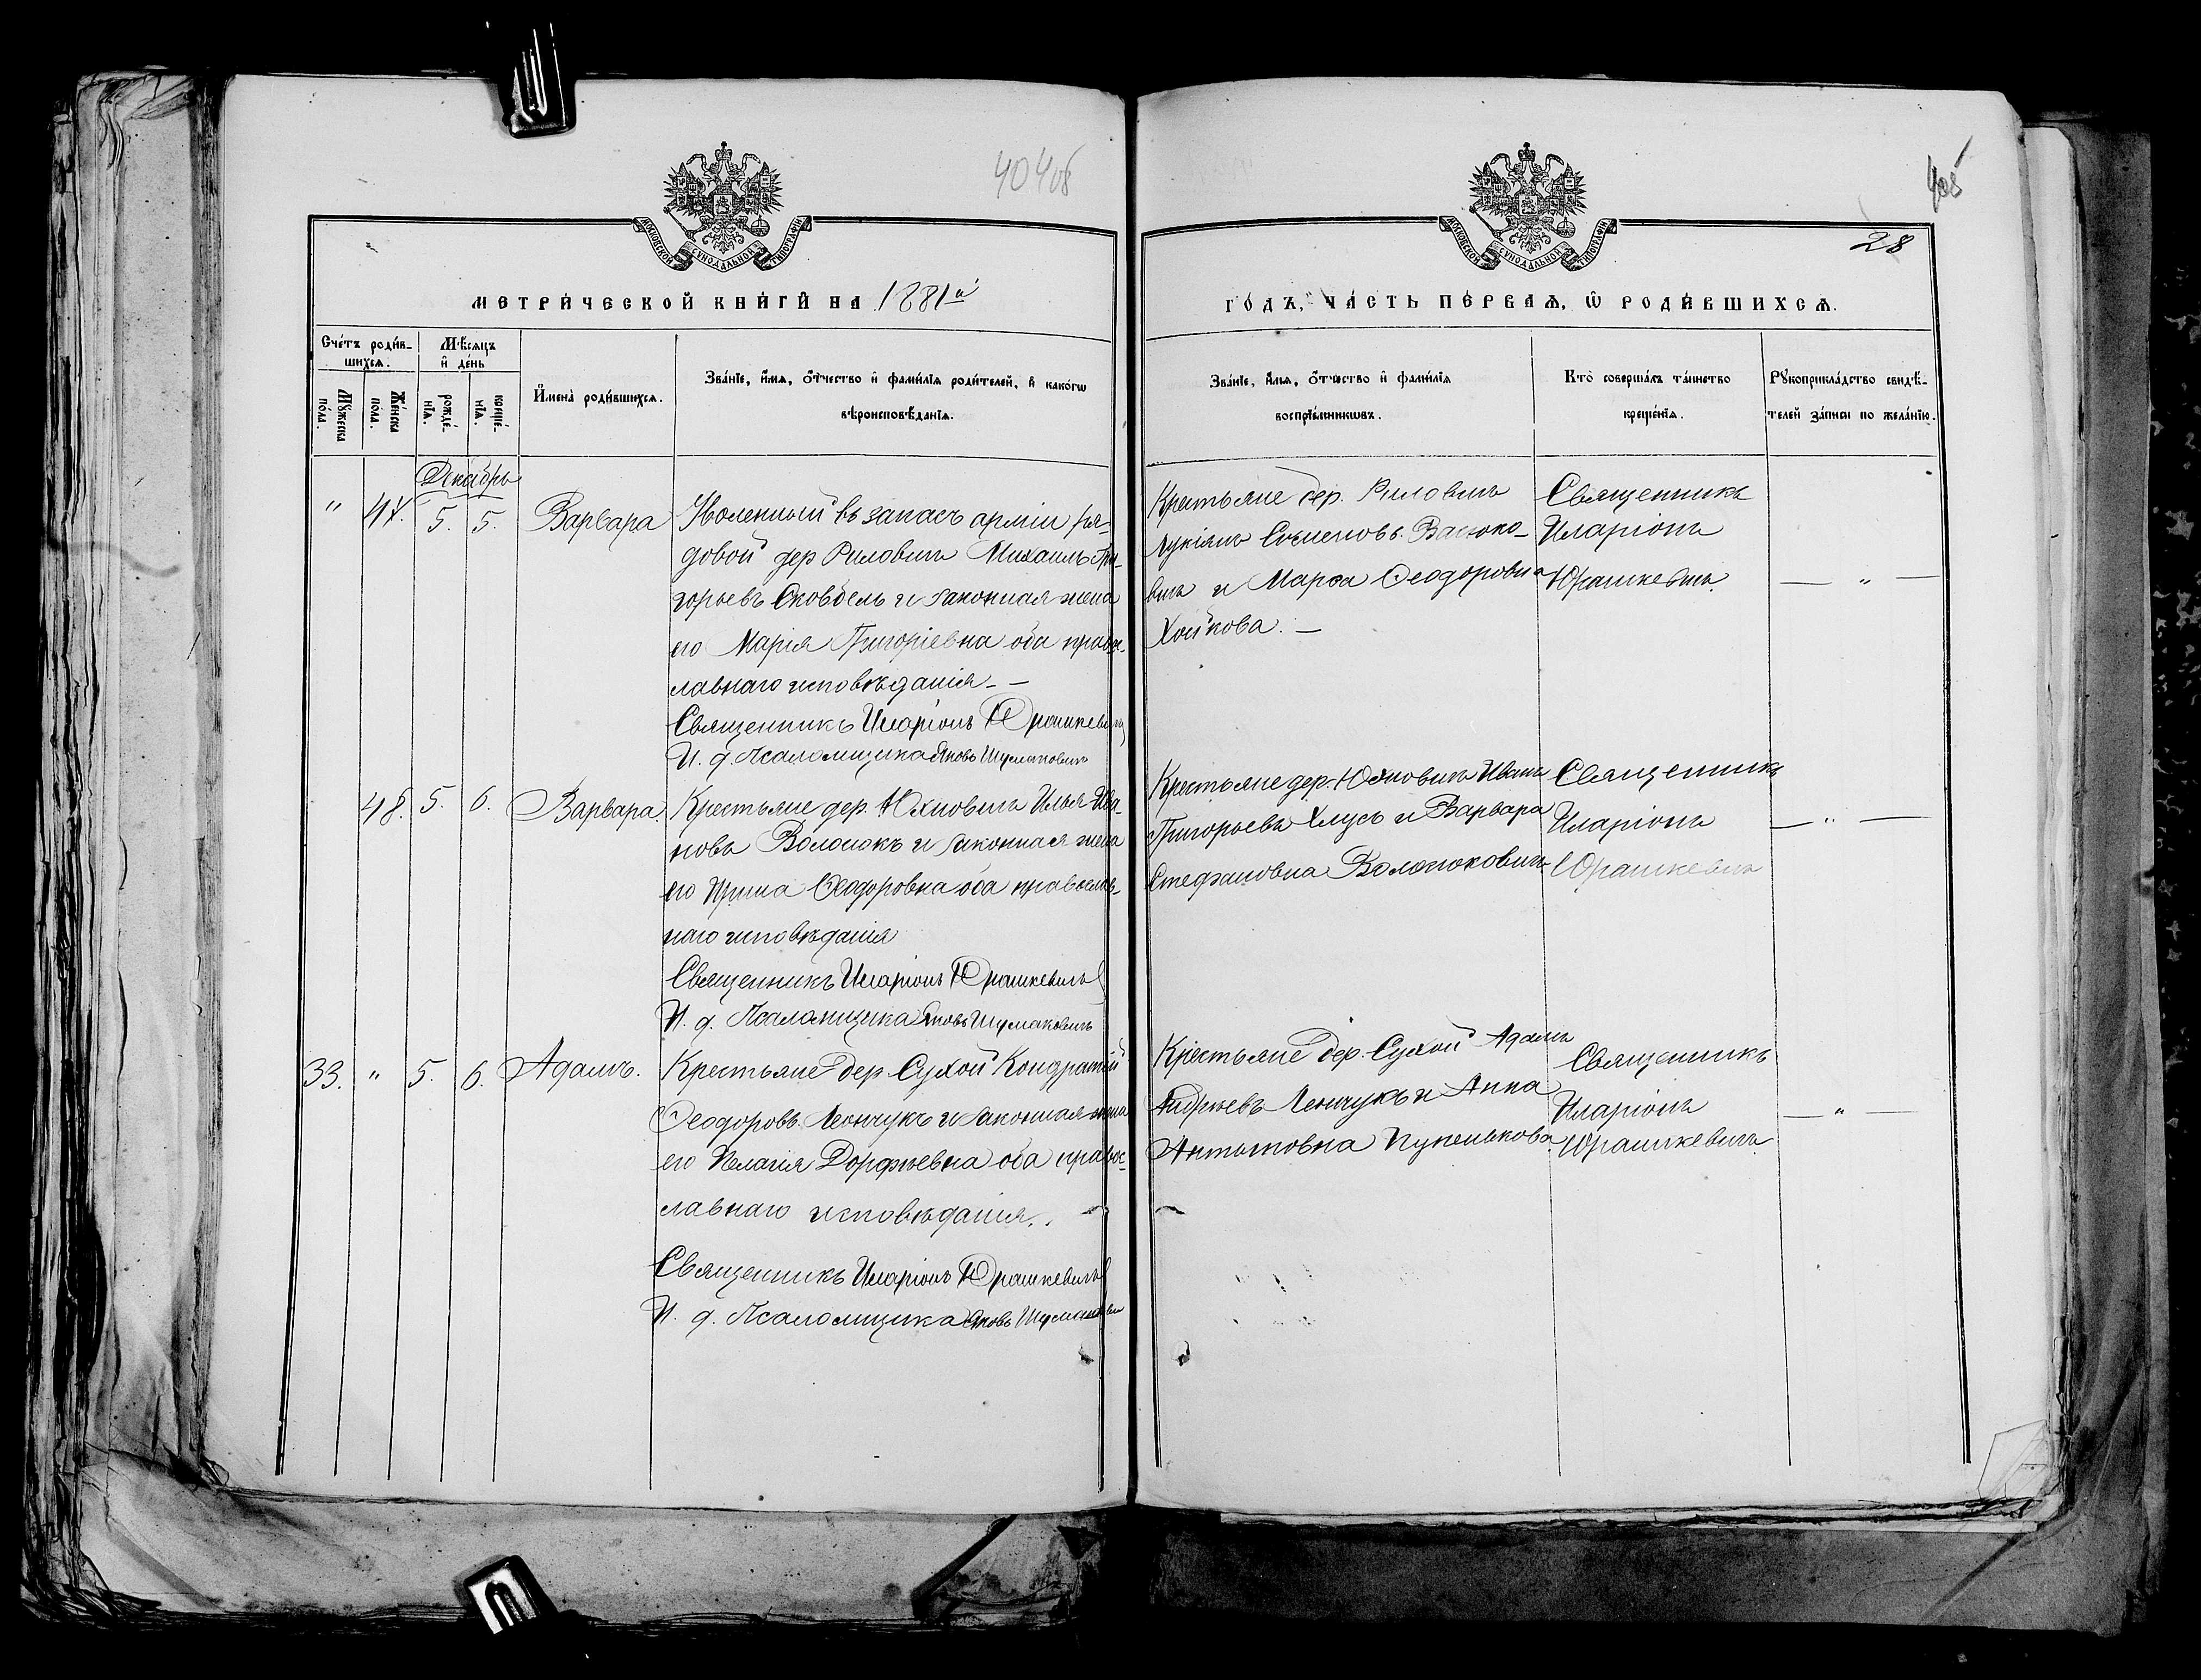 404об
405
28
МОСКОВСКОЙ СѴНОДАЛЬНОЙ ТИПОГРАФІИ
МОСКОВСКОЙ СѴНОДАЛЬНОЙ ТИПОГРАФІИ
МЕТРИ́ЧЕСКОЙ КНИ́ГИ НА 1881й
ГО́ДЪ, ЧА́СТЬ ПЕ́РВАѦ, Ѿ РОДИ́ВШИХСѦ.
Сче́тъ роди́в-
шихсѧ.
Мꙋ́жеска по́ла.
Же́нска по́ла.
Мѣ́сѧцъ
и҆ де́нь
рожде́-
нїѧ.
креще́-
нїѧ.
И҆мена̀ роди́вшихсѧ.
Зва́нїе, и҆́мѧ, ѻ҆́тчество и҆ фами́лїѧ роди́телей, и҆ како́гѡ
вѣроисповѣ́данїѧ.
Зва́нїе, и҆́мѧ, ѻ҆́тчество и҆ фами́лїѧ
воспрїе́мникѡвъ.
Кто̀ соверша́лъ та́инство
креще́нїѧ.
Рꙋкоприкла́дство свидѣ́-
телей за́писи по жела́нїю.
Декабрь
" 47. 5. 5. Варвара
Уволенный въ запасъ арміи ря-
довой дер Риловичъ Михаилъ Гри-
горьевъ Сковбель и законная жена
его Марія Григоріевна оба право-
славнаго исповѣданія. —
Священникъ Иларіонъ Юрашкевичъ
И. д. Псаломщика Яковъ Шумаковичъ
Крестьяне дер. Риловичъ
Лукіянъ
и Марѳа Ѳеодоровна
Хойкова. —
Священникъ
Иларіонъ
Юрашкевичъ.
— " —
48. 5. 6. Варвара.
Крестьяне дер. Юхновичъ Илья Ива-
новъ Волотокъ и законная жена
его Ирина Ѳеодоровна оба православ-
наго исповѣданія
Священникъ Иларіонъ Юрашкевичъ
И. д. Псаломщика Яковъ Шумаковичъ
Крестьяне дер. Юхновичъ Иванъ
Григорьевъ Хлусъ и Варвара
Стефановна Волотоковичъ
Священникъ
Иларіонъ
Юрашкевичъ
— " —
33. " 5. 6. Адамъ.
Крестьяне дер Сухой Кондратій
Ѳеодоровъ Леончукъ и законная жена
его Пелагія Дорофѣевна оба право-
славнаго исповѣданія.
Священникъ Иларіонъ Юрашкевичъ
И. д. Псаломщика Яковъ Шумаковичъ
Крестьяне дер. Сухой Адамъ
Андреевъ Леончукъ и Анна
Антоновна
Священникъ
Иларіонъ
Юрашкевичъ.
— " —